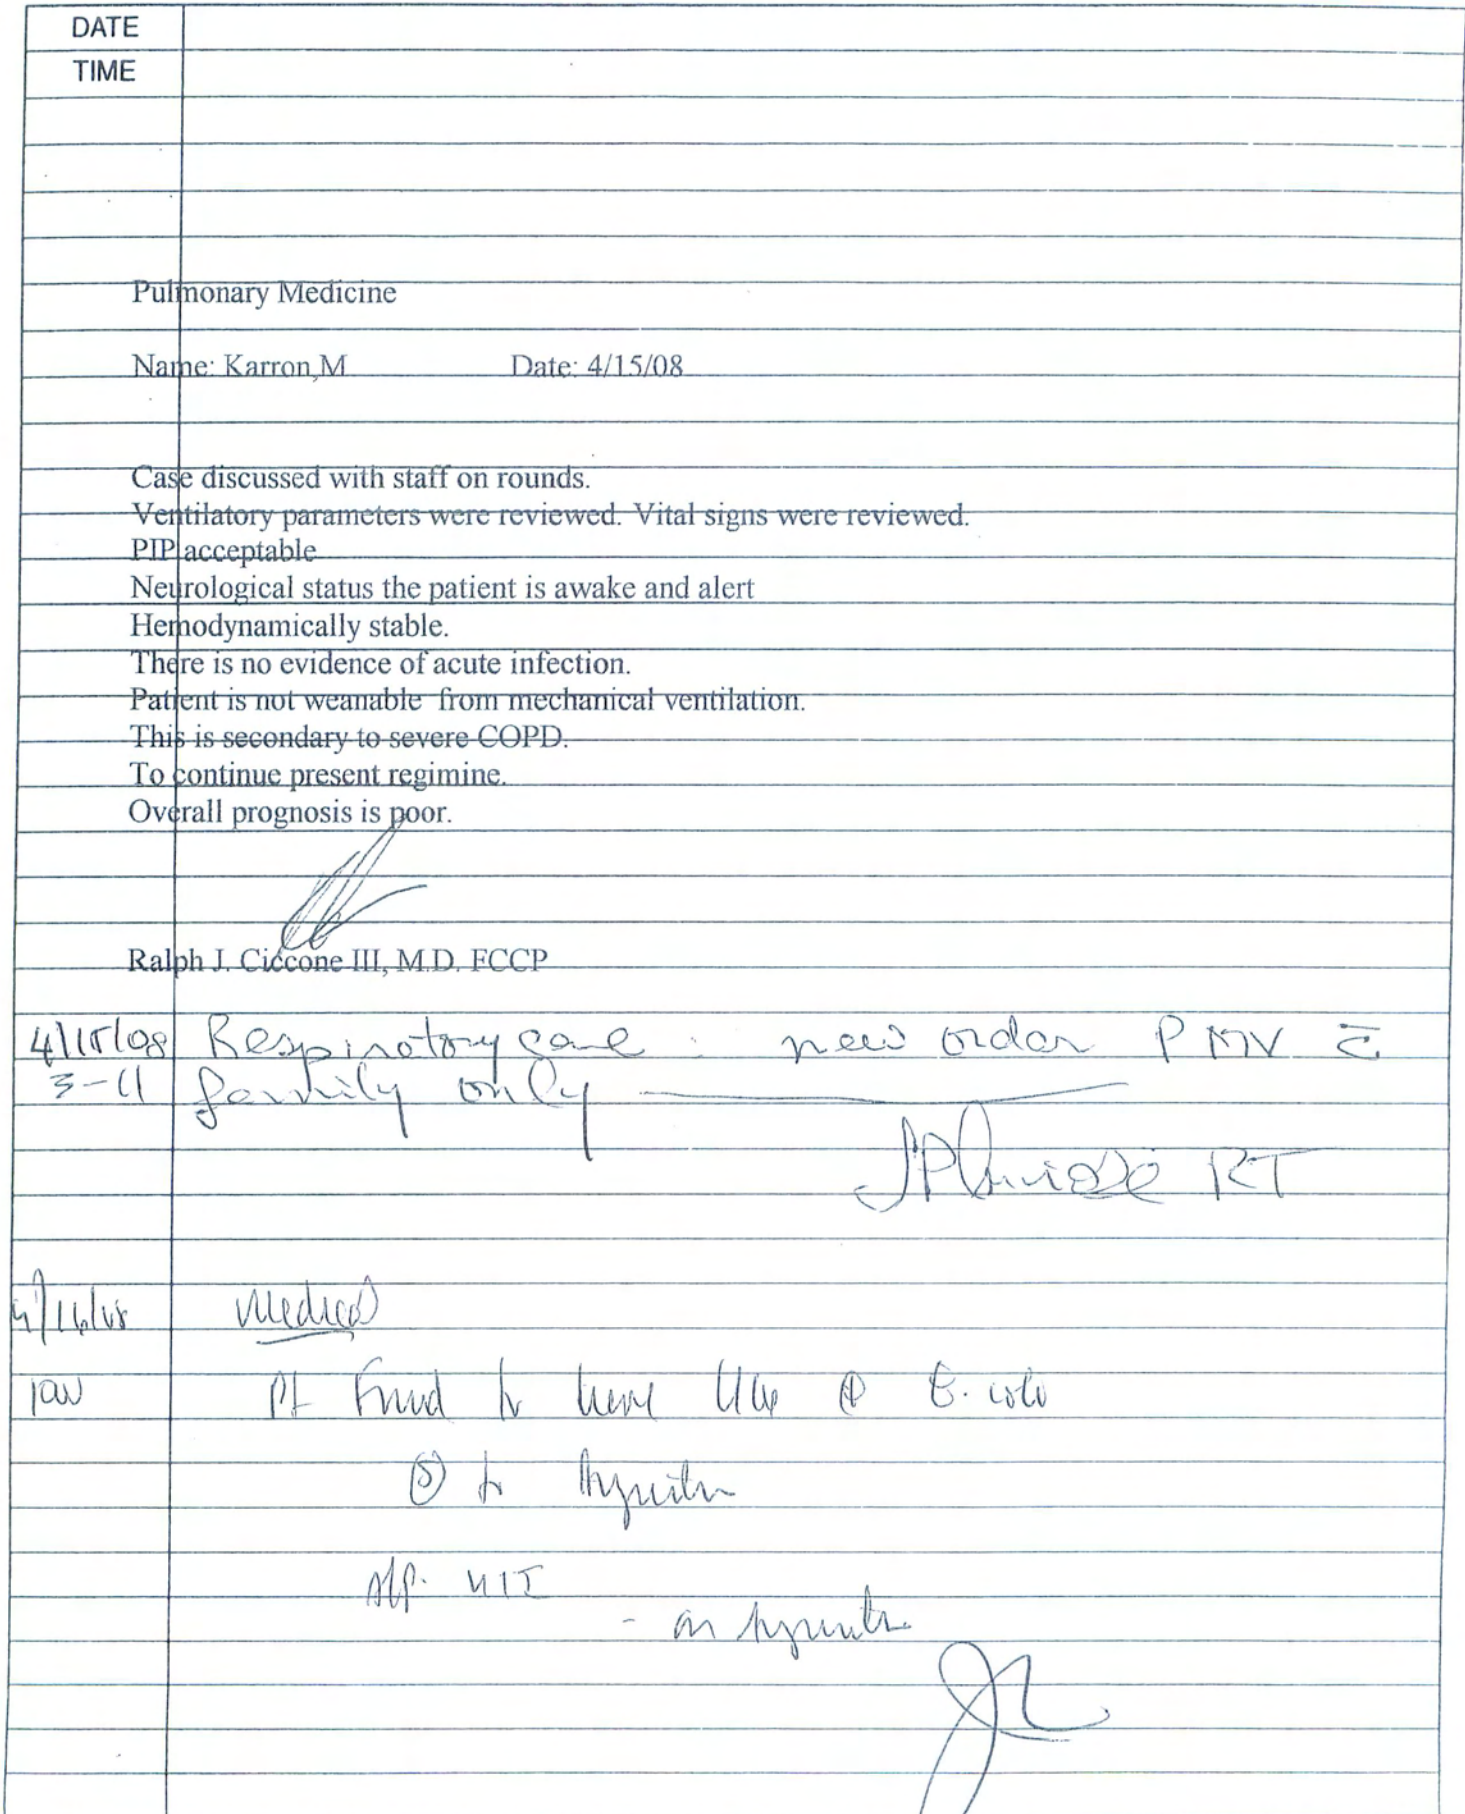 DATE
TIME
Pulmonary Medicine
Name: Karron,M Date: 4/15/08
Case discussed with staff on rounds.
Ventilatory parameters were reviewed. Vital signs were reviewed.
PIP acceptable
Neurological status the patient is awake and alert
Hemodynamically stable.
There is no evidence of acute infection.
Patient is not weanable from mechanical ventilation.
This is secondary to severe COPD.
To continue present regimine.
Overall prognosis is poor.
Ralph J. Ciccone III, M.D. FCCP
4/15/08 Respiratory care : new order PMV c̄
3-11 family only
RT
4/16/08 Medical
Pt Found to have E. coli
Ⓢ to
UTI
- on